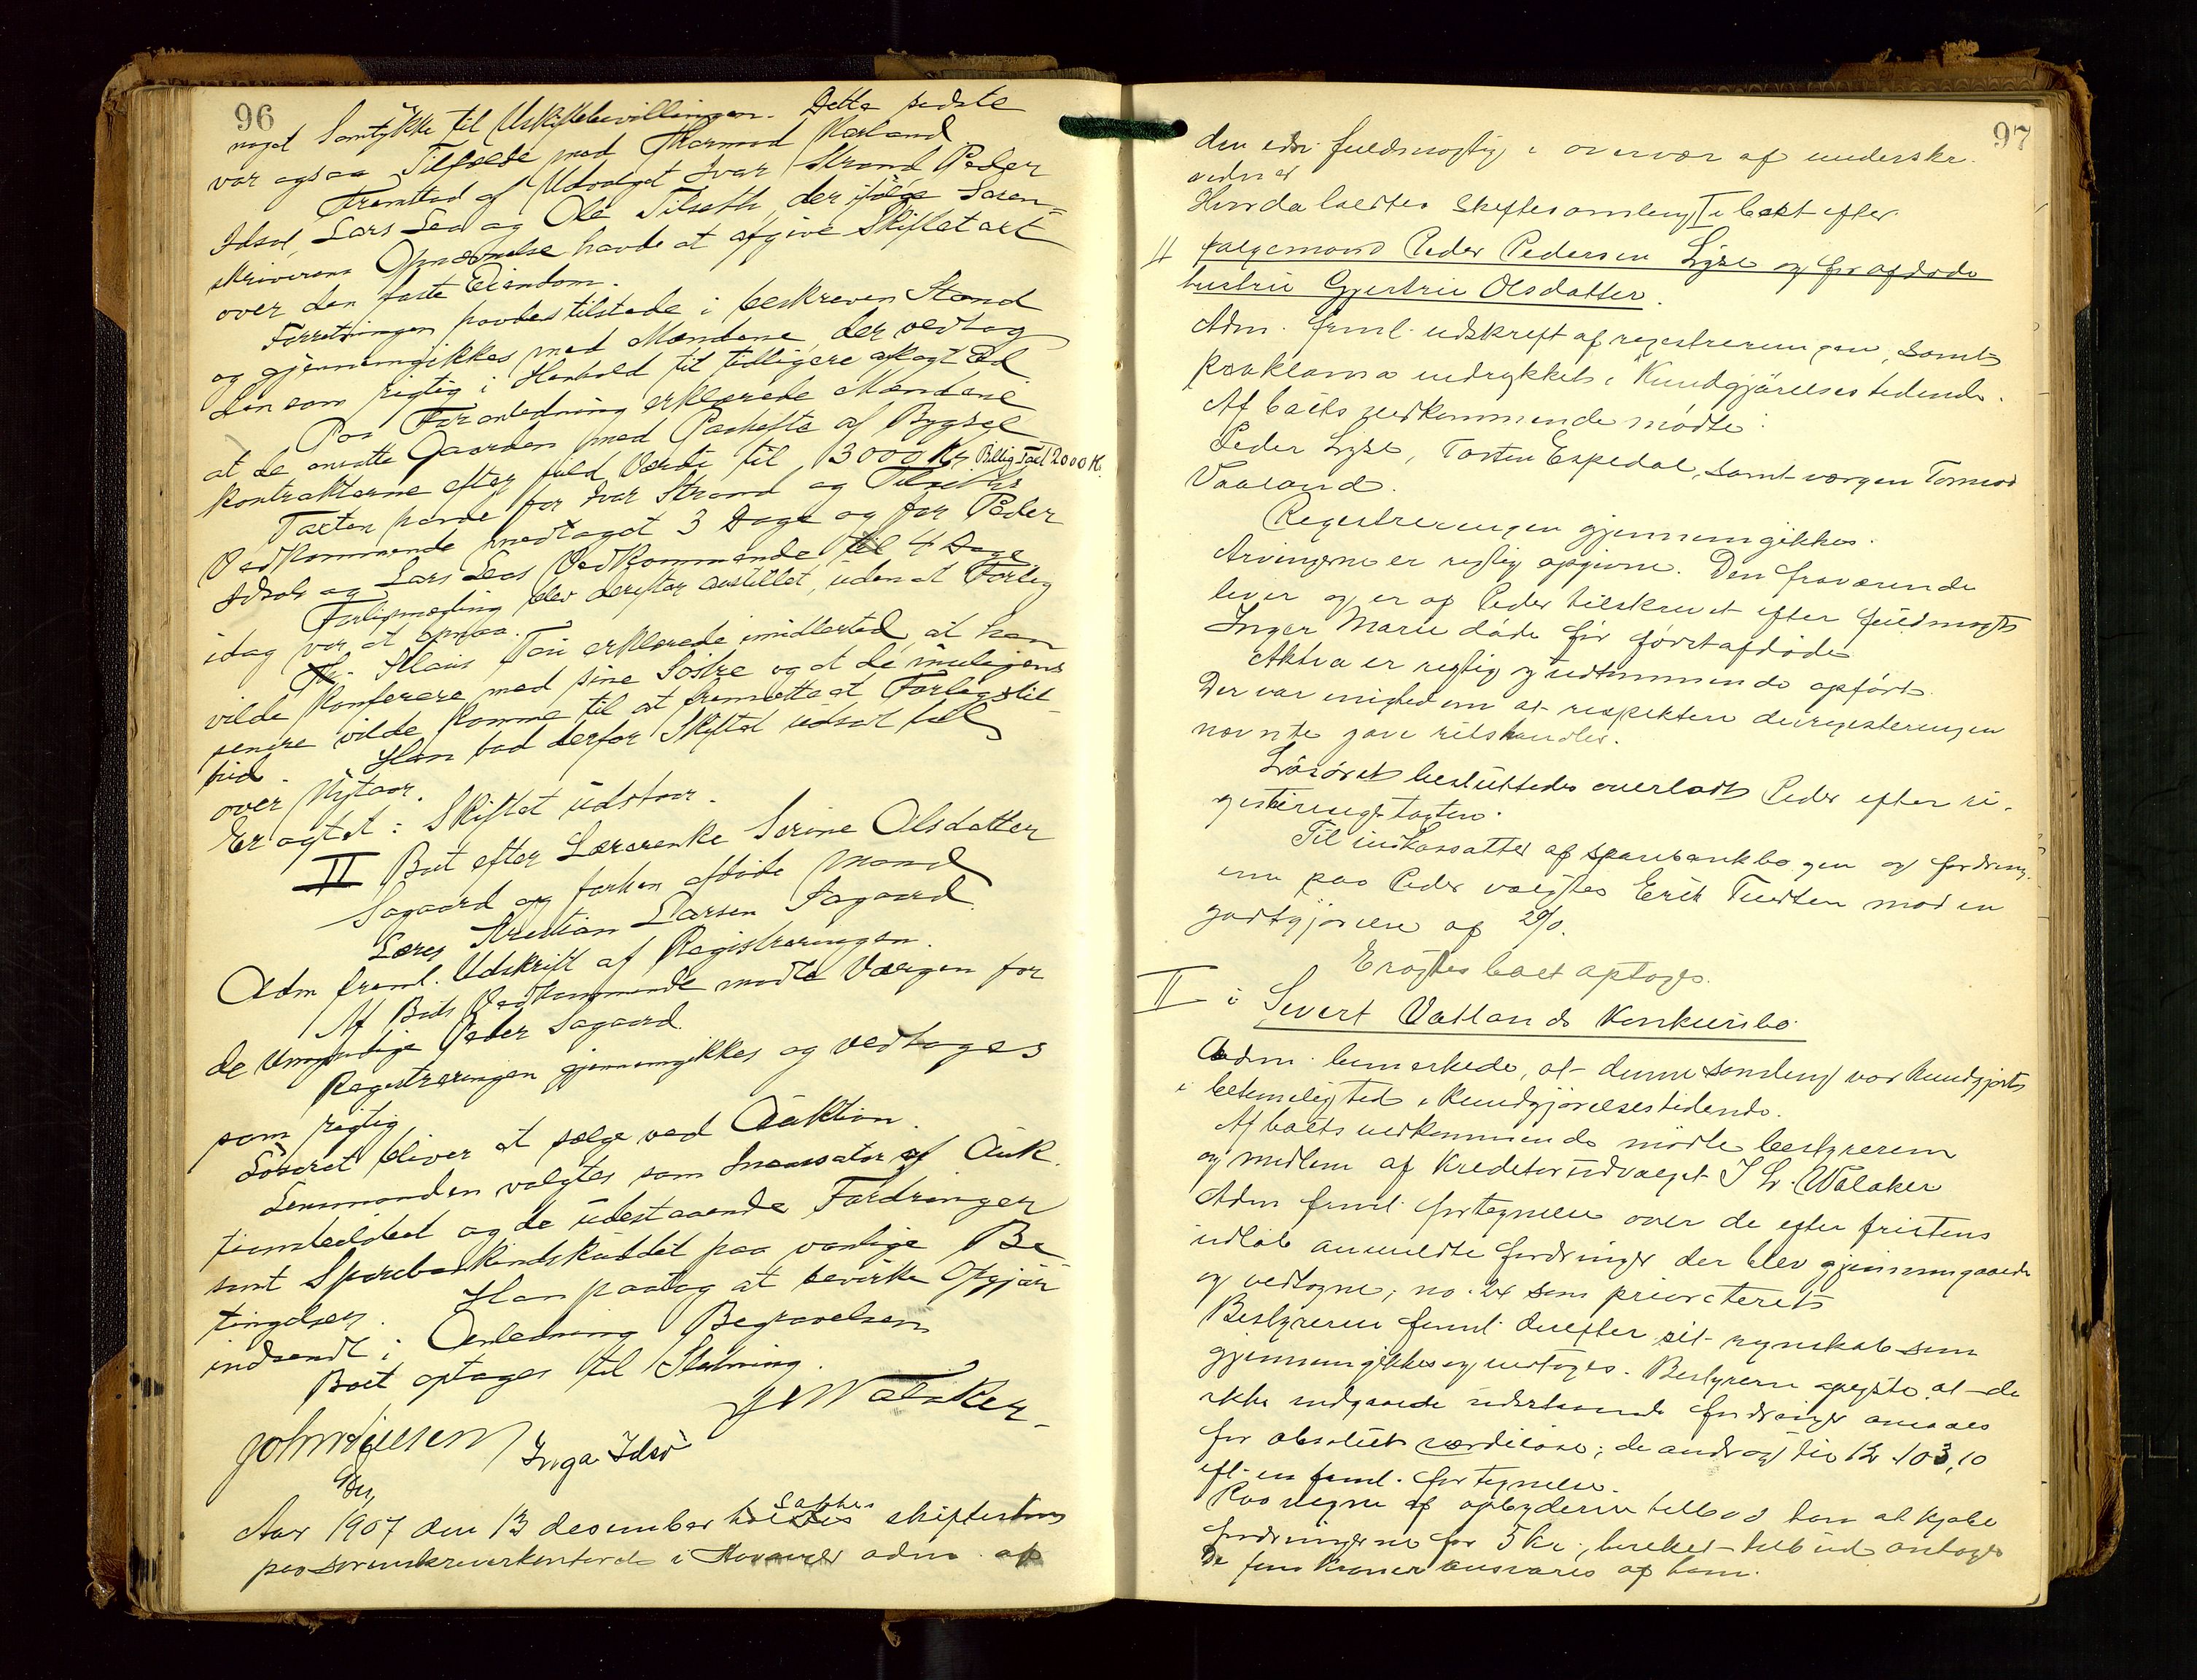 96
noget Samtykke til Uskiftebevillingen. Dette sidste
var ogsaa Tilfælde med Thormod Vaaland
Fremstod af Udvalget Ivar Strand Peder
Idsøe, Lars Lea og Ole Tilseth, der ifølge Soren-
skriverens Opnævnelse havde at afgive Skiftetaxt
over den faste Eiendom.
Forretningen havdes tilstede i beskreven Stand
og gjennemgikkes med Mændene, der vedtog
den som rigtig i Henhold til tidligere aflagt Ed
Paa Foranledning erklærede Mændene
at de ansatte Gaarden med Paahefte af Bygsel
kontrakterne efter fuld Værdi til 3000 Kr Billig Taxt 2000 K.
Taxten havde for Ivar Strand og Tilseths
Vedkommende medtaget 3 Dage og for Peder
Idsøe og Lars Leas Vedkommende til 4 Dage
Forligsmægling blev derefter anstillet, uden at Forlig
idag var at opnaa.
Klaus Tau erklærede imidlertid, at han
vilde konferere med sine Søstre og at de muligens
senere vilde komme til at fremsætte et Forligstil-
bud. Han bad derfor Skiftet udsat til
over Nytaar.
Eragtet: Skiftet udstaar.
II Boet efter Lærerenke Serine Olsdatter
Sagaard og forhen afdøde Mand
Lærer Kristian Larsen Sagaard.
Adm freml. Udskrift af Registreringen.
Af Boets Vedkommende mødte Værgen for
de Umyndige Peder Sagaard.
Registreringen gjennemgikkes og vedtoges
som rigtig
Løsøret bliver at sælge ved Auktion.
Lensmanden valgtes som Incassator af Auk-
tionsbeløbet og de udestaaende Fordringer
samt Sparebankindskuddet paa vanlige Be-
tingelser. Han paatog at bevirke Opgjør
indsendt i Anledning Begravelsen
Boet optages til Slutning.
J S Walaker
Inga Idsø
Aar 1907 den 13 desember sattes skifteret
paa sorenskriverkontoret i adm. af
97
den edsv. fuldmægtig i overvær af underskr.
vidner
Hvorda holdtes skiftesamling I i boet efter
folgemand Peder Pedersen Lyse og før afdøde
hustru Gjertrue Olsdatter.
Adm. freml. udskrift af registreringen, samt
proklama indrykket i Kundgjørelsestidende.
Af boets vedkommende mødte:
Peder Lyse, Torsten Espedal, samt værgen Tormod
Vaaland.
Registreringen gjennemgikkes.
Arvingerne er rigtig opgivne. Den fraværende
lever og er af Peder tilskrevet efter fuldmagt
Inger Marie døde før førstafdøde
Aktiva er rigtig og udtømmende opført.
Der var enighed om at respektere de i registreringen
nævnte gaveretshandler.
Løsøret besluttedes overladt Peder efter re-
gistreringstagten.
Til inkassator af sparebankbogen og fordring-
erne paa Peder valgtes Erik Tudsten mod en
godtgjørelse af 2%.
Eragtes boet optoges.
II i Sivert Vatlands Konkursbo.
Adm. bemerkede, at denne samling var kundgjort
i betimelig tid i Kundgjørelsestidende.
Af boets vedkommende mødte bestyreren
og medlem af kreditorudvalget J. S. Walaker
Adm freml. fortegnelse over de efter fristens
udløb anmeldte fordringer der blev gjennemgaaede
og vedtagne, no. 24 som prioriteret
Bestyreren freml. derefter sit regnskab som
gjennemgikkes og vedtoges. Bestyreren opgiste at de
ikke indgaaede udestaaende fordringer ansaaes
for absolut værdiløse; de androg til kr. 103,10
efter en freml. fortegnelse.
Paa vegne af opbyderen tilbød han at kjøbe
fordringerne for 5 kr., hvilket tilbud antoges
De fem kroner ansvares af ham.